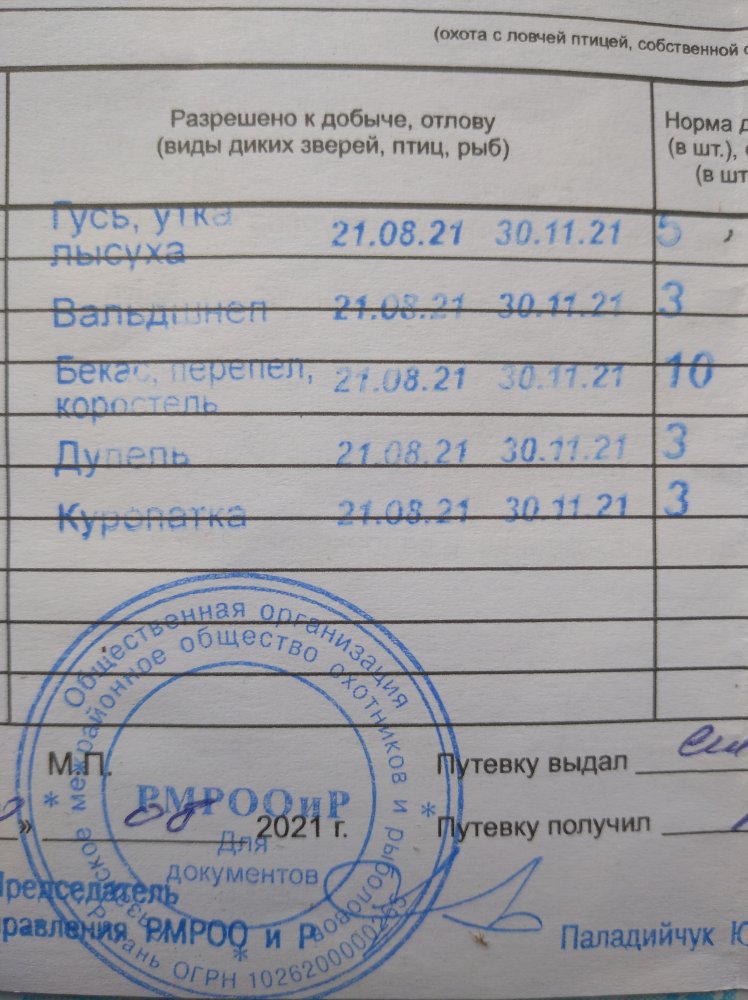 (охота с ловчей птицей, собственной
Разрешено к добыче, отлову
(виды диких зверей, птиц, рыб)
Норма
(в шт.),
(в шт
Гусь, утка
лысуха 21.08.21 30.11.21 5
Вальдшнеп 21.08.21 30.11.21 3
Бекас, перепел,
коростель 21.08.21 30.11.21 10
Дупель 21.08.21 30.11.21 3
Куропатка 21.08.21 30.11.21 3
Общественная организация
межрайонное общество охотников и рыболовов
РМРООиР
Для
документов
ОГРН
М.П.
Путевку выдал
» 08 2021 г.
Путевку получил
Председатель
правления РМРОО и Р
Паладийчук Ю